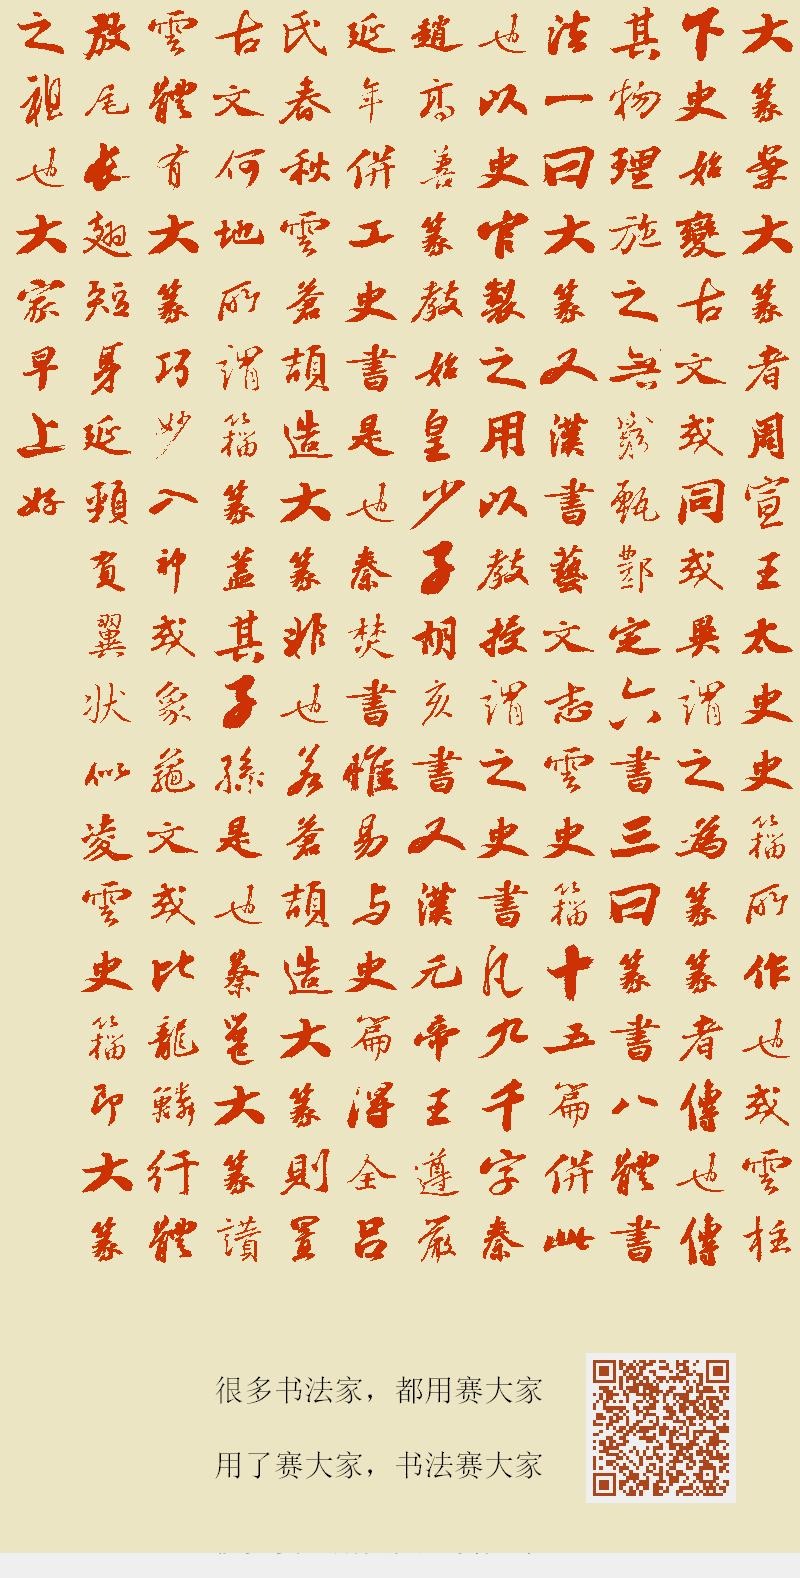 大篆案大篆者周宣王太史史籀所作也或雲柱
下史始變古文或同或異謂之為篆篆者傳也傳
其物理施之無窮甄酆定六書三曰篆書八體書
法一曰大篆又漢書藝文志雲史籀十五篇併此
也以史官製之用以教授謂之史書凡九千字秦
趙高善篆教始皇少子胡亥書又漢元帝王遵嚴
延年併工史書是也秦焚書惟易与史篇得全呂
氏春秋雲蒼頡造大篆非也若蒼頡造大篆則置
古文何地所謂籀篆蓋其子孫是也蔡邕大篆讚
雲體有大篆巧妙入神或象龜文或比龍鱗紆體
放尾长翅短身延頸負翼状似凌雲史籀即大篆
之祖也大家早上好
很多书法家，都用赛大家
用了赛大家，书法赛大家